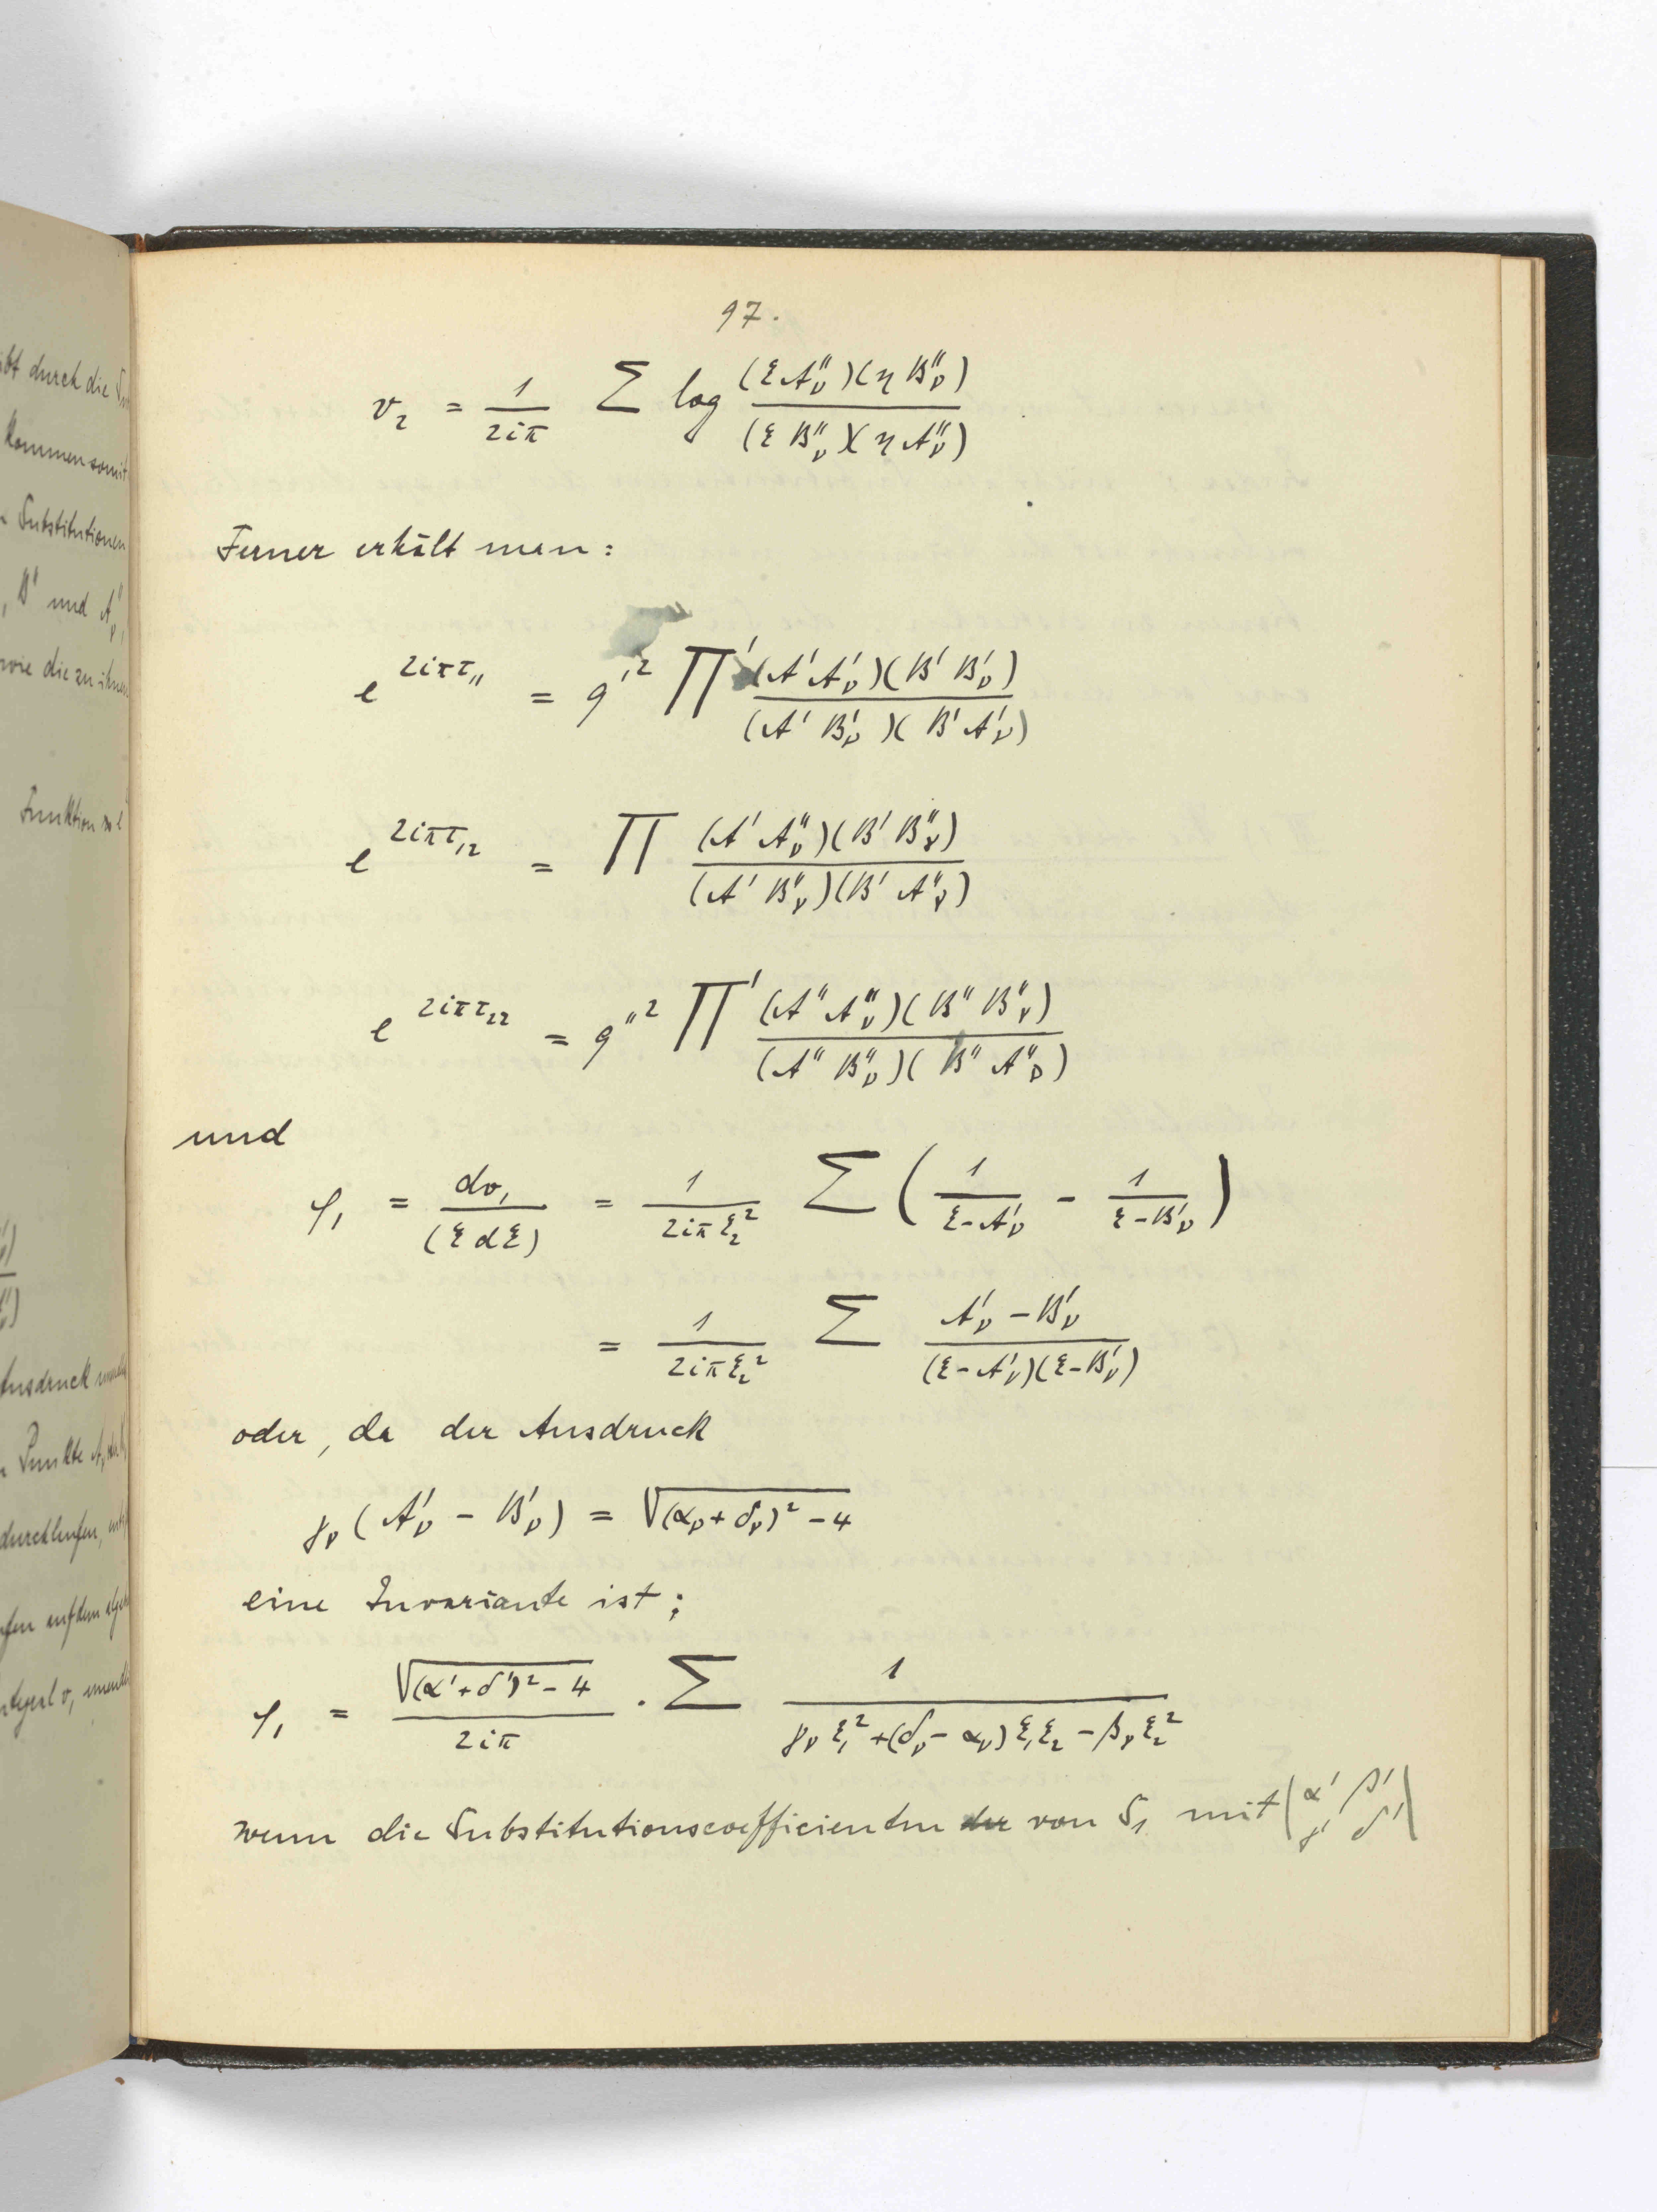 97.
v₂ = 1/(2iπ) Σ log (ξA″ᵥ)(ηB″ᵥ) / (ξB″ᵥ)(ηA″ᵥ)
Ferner erhält man:
e^{2iπτ₁₁} = q′² Π′ (A′A′ᵥ)(B′B′ᵥ) / (A′B′ᵥ)(B′A′ᵥ)
e^{2iπτ₁₂} = Π (A′A″ᵥ)(B′B″ᵥ) / (A′B″ᵥ)(B′A″ᵥ)
e^{2iπτ₂₂} = q″² Π′ (A″A″ᵥ)(B″B″ᵥ) / (A″B″ᵥ)(B″A″ᵥ)
und
φ₁ = dv₁/(ξdξ) = 1/(2iπξ₂²) Σ (1/(ξ-A′ᵥ) - 1/(ξ-B′ᵥ))
= 1/(2iπξ₂²) Σ (A′ᵥ - B′ᵥ) / (ξ-A′ᵥ)(ξ-B′ᵥ)
oder, da der Ausdruck
γᵥ(A′ᵥ - B′ᵥ) = √((αᵥ+δᵥ)² - 4)
eine Invariante ist;
φ₁ = √((α′+δ′)² - 4)/(2iπ) · Σ 1/(γᵥξ₁² + (δᵥ - αᵥ)ξ₁ξ₂ - βᵥξ₂²)
wenn die Substitutionscoefficienten von S₁ mit |α′ β′ γ′ δ′|
ibt durch die
kommen somit
Substitutionen
, B′ und A″ᵥ,
wie die zu ihnen
Funktion
Ausdruck
Punkte
durchlaufen,
auf dem